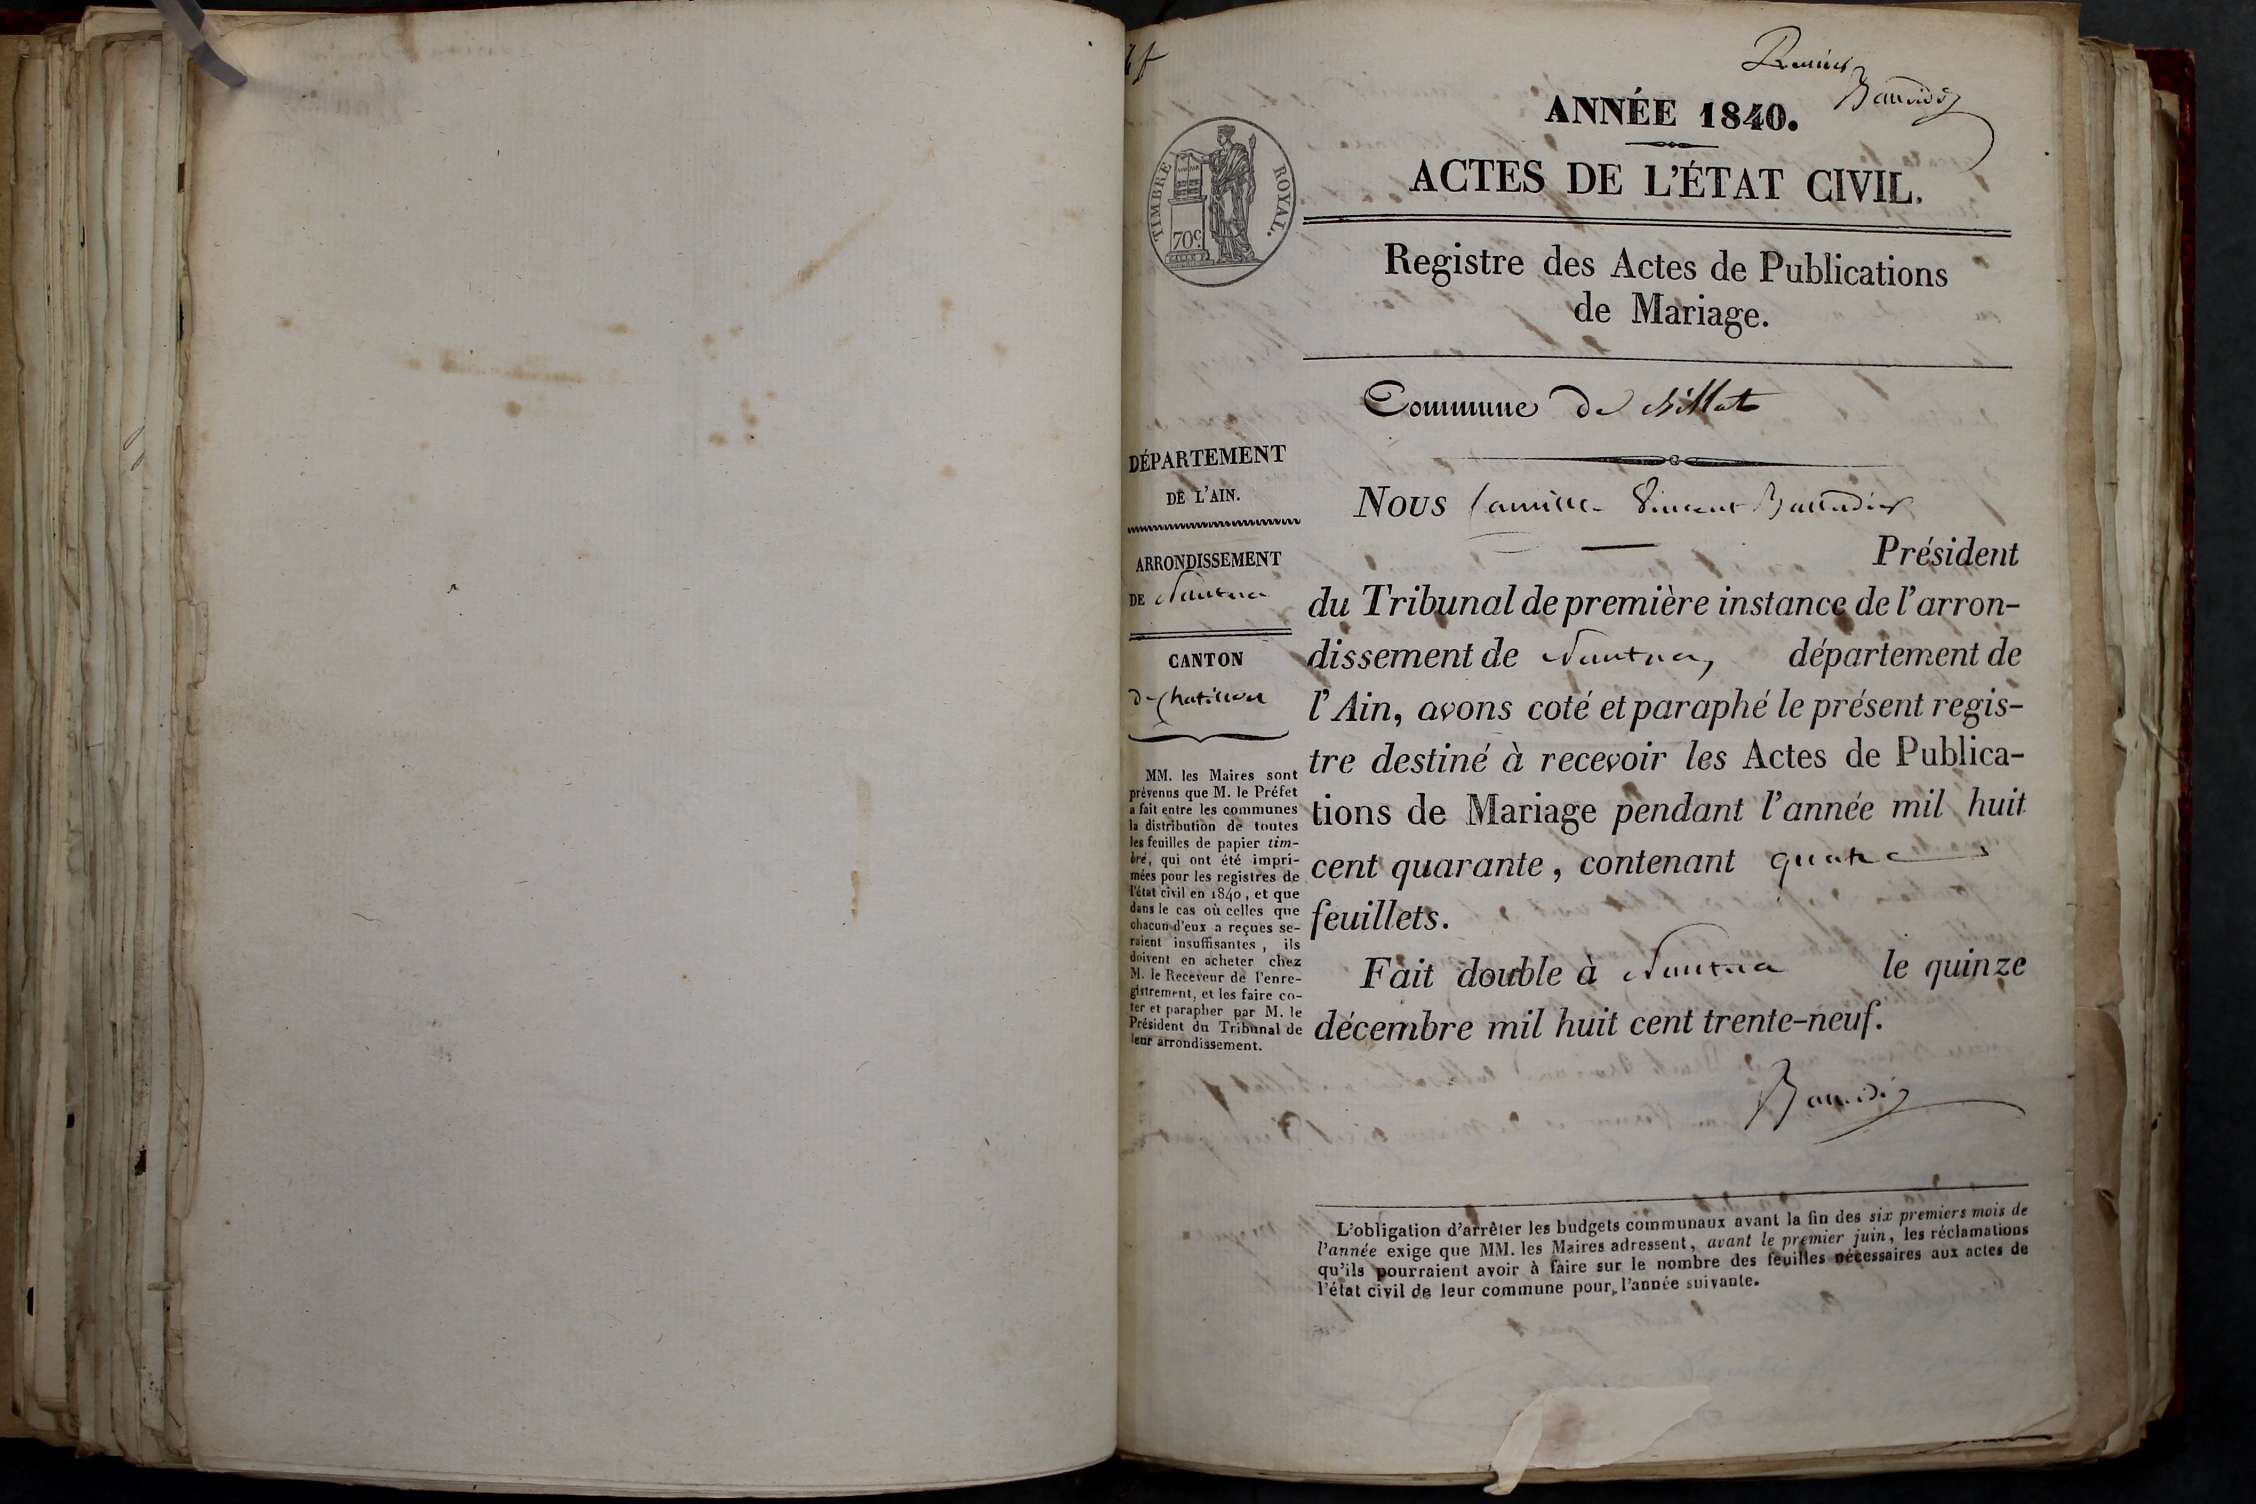 ANNÉE 1840.
ACTES DE L'ÉTAT CIVIL.
TIMBRE ROYAL.
70c.
Registre des Actes de Publications
de Mariage.
Commune de Billiat
DÉPARTEMENT
DE L'AIN.
ARRONDISSEMENT
DE Nantua
CANTON
de Chatillon
MM. les Maires sont
prévenus que M. le Préfet
a fait entre les communes
la distribution de toutes
les feuilles de papier tim-
bré, qui ont été impri-
mées pour les registres de
l'état civil en 1840, et que
dans le cas où celles que
chacun d'eux a reçues se-
raient insuffisantes, ils
doivent en acheter chez
M. le Receveur de l'enre-
gistrement, et les faire co-
ter et parapher par M. le
Président du Tribunal de
leur arrondissement.
Nous Camille Vincent Baudier
Président
du Tribunal de première instance de l'arron-
dissement de Nantua, département de
l'Ain, avons coté et paraphé le présent regis-
tre destiné à recevoir les Actes de Publica-
tions de Mariage pendant l'année mil huit
cent quarante, contenant quatre
feuillets.
Fait double à Nantua le quinze
décembre mil huit cent trente-neuf.
L'obligation d'arrêter les budgets communaux avant la fin des six premiers mois de
l'année exige que MM. les Maires adressent, avant le premier juin, les réclamations
qu'ils pourraient avoir à faire sur le nombre des feuilles nécessaires aux actes de
l'état civil de leur commune pour l'année suivante.